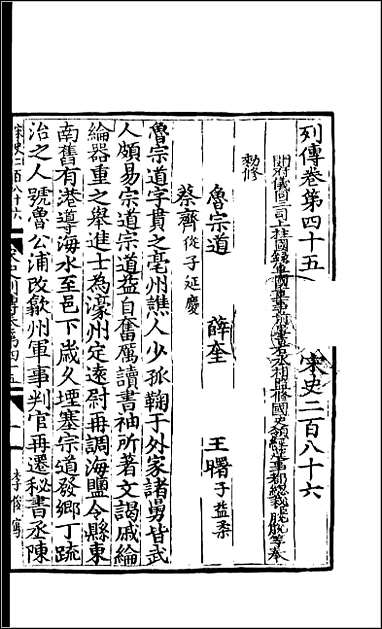 列傳卷第四十五 宋史二百八十六
開府儀同三司上柱國錄軍國重事前中書右丞相監修國史領經筵事都總裁脫脫等奉
勅修
魯宗道 薛奎 王曙子益柔
蔡齊從子延慶
魯宗道字貫之亳州譙人少孤鞠于外家諸舅皆武
人頗易宗道宗道益自奮厲讀書袖所著文謁戚綸
綸器重之舉進士為濠州定遠尉再調海鹽令縣東
南舊有港導海水至邑下歲久堙塞宗道發鄉丁疏
治之人號魯公浦改歙州軍事判官再遷秘書丞陳
宋史二百八十六